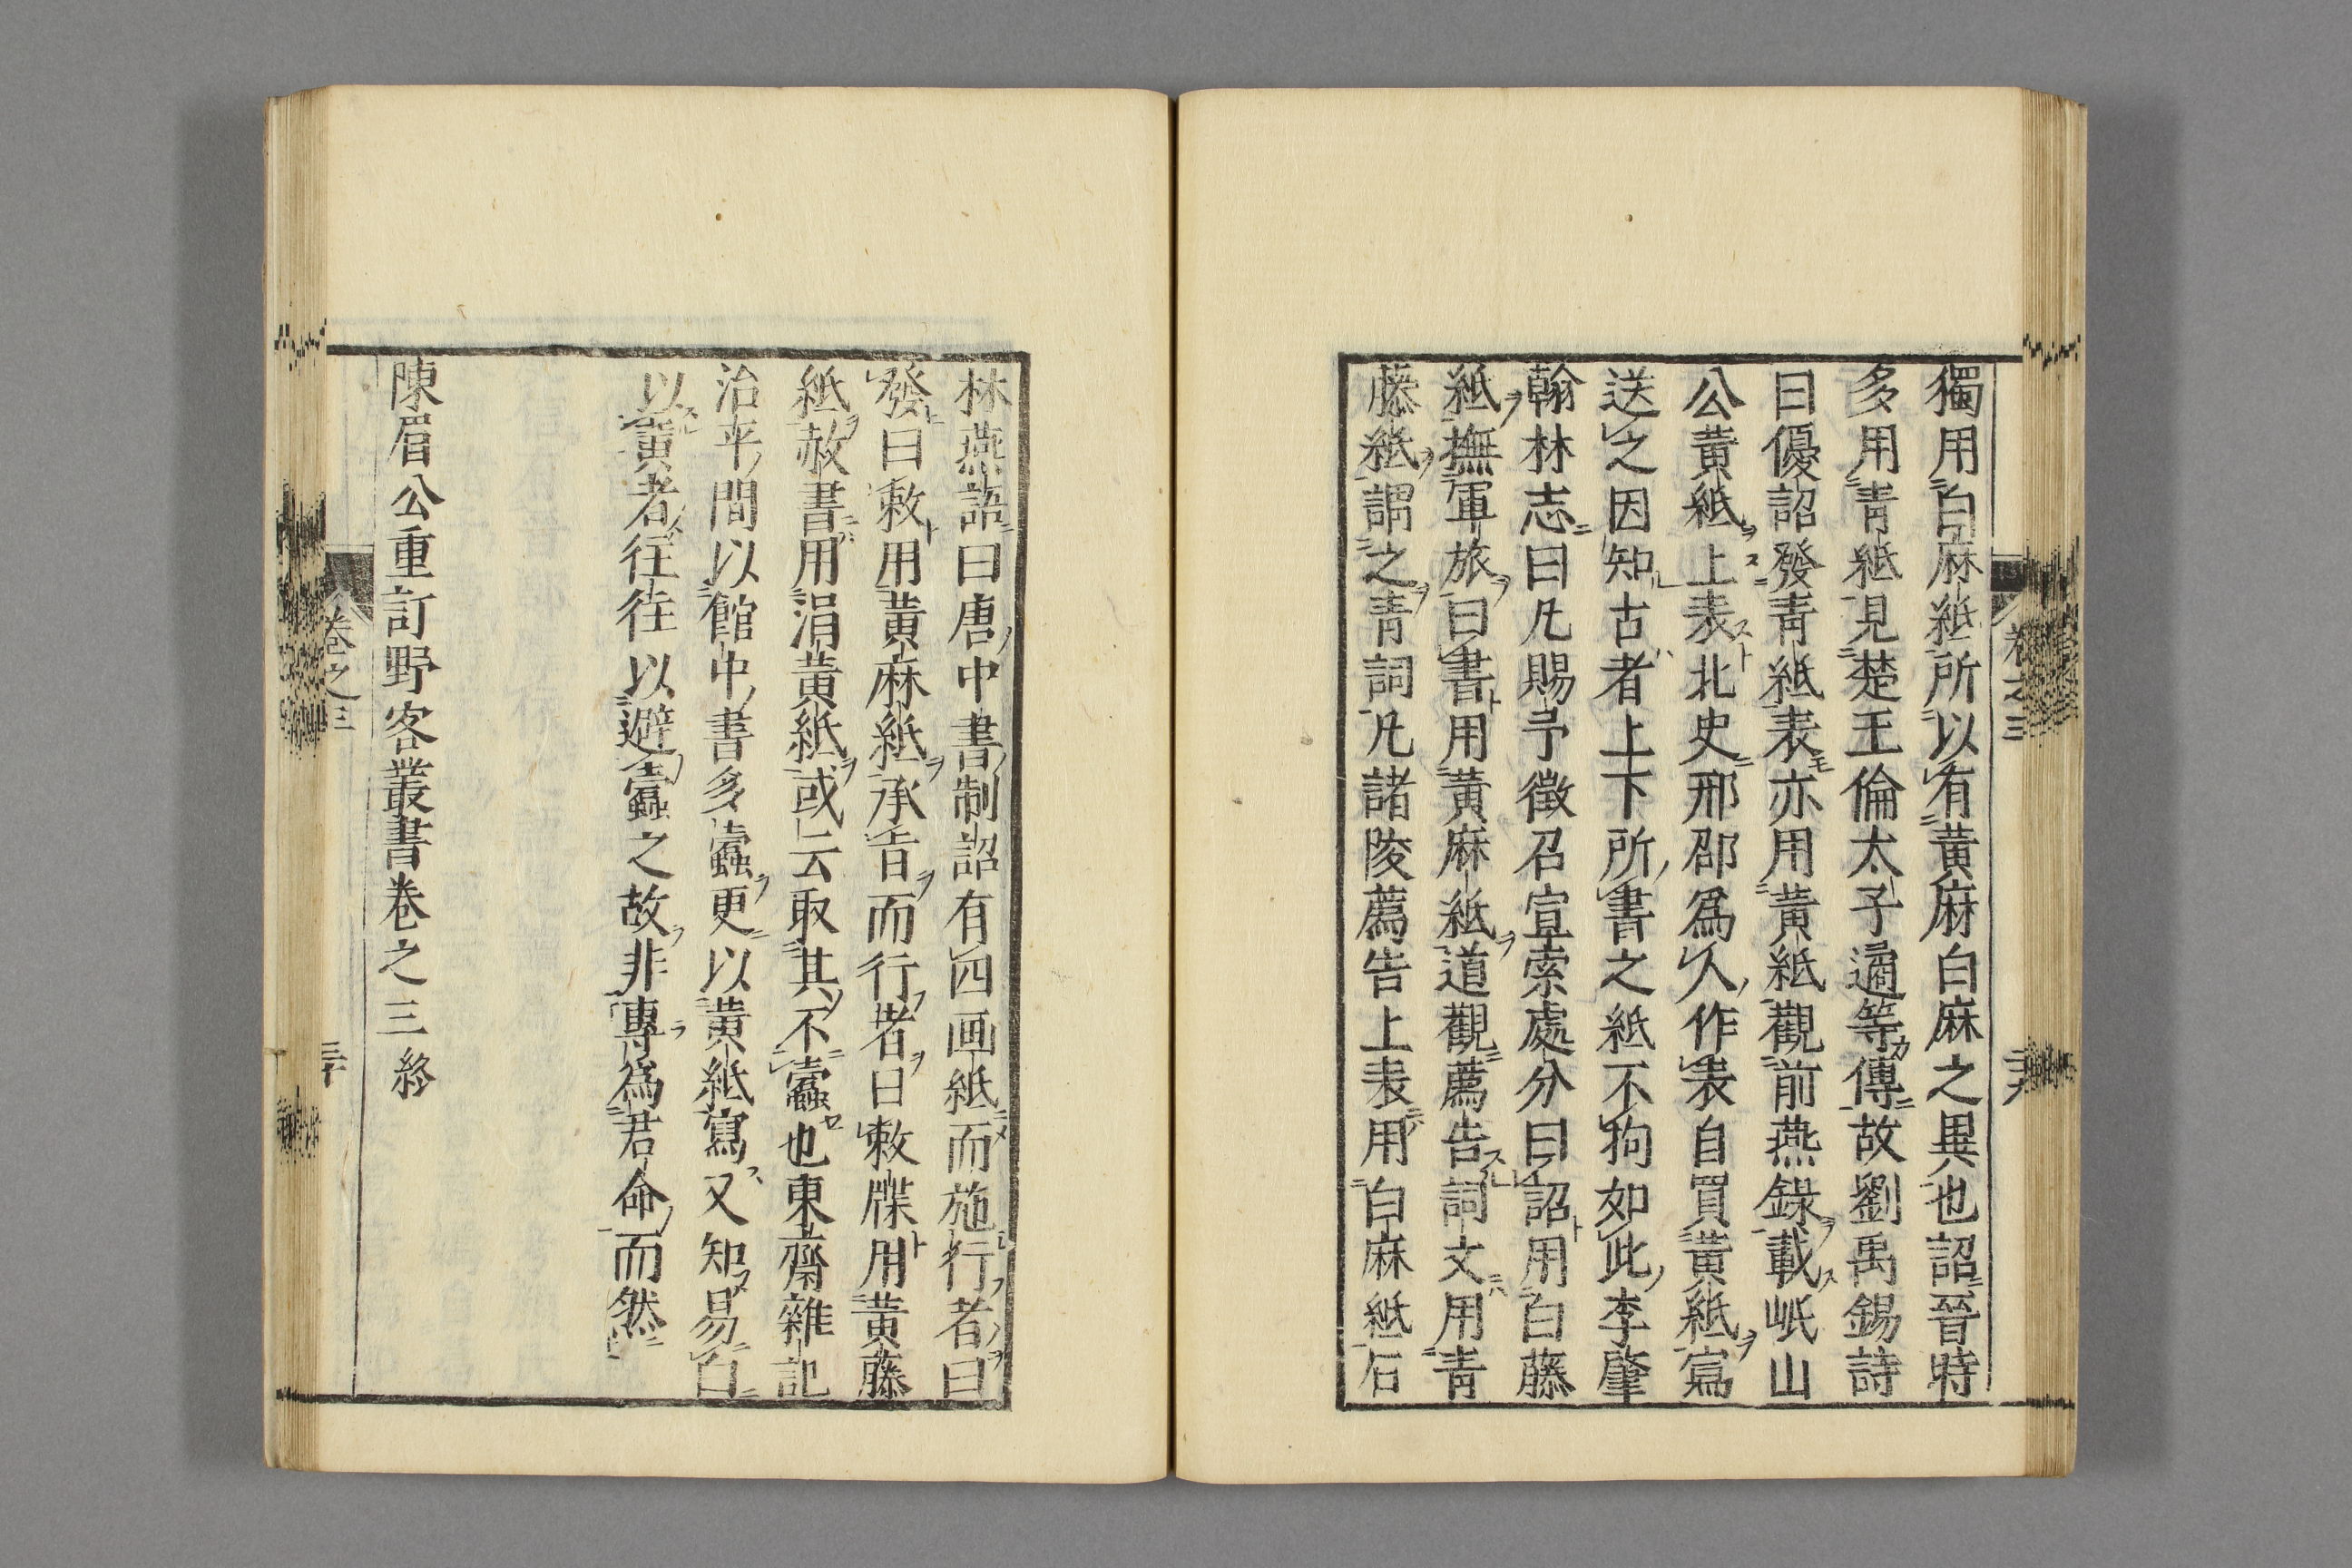 獨用白麻紙所以有黃麻白麻之異也詔晉時
多用青紙見楚王倫太子遹等傳故劉禹錫詩
曰優詔發青紙表亦用黃紙觀前燕錄載岷山
公黃紙上表北史邢邵爲人作表自買黃紙寫
送之因知古者上下所書之紙不狗如此李肇
翰林志曰凡賜予徵召宣索處分曰詔用白藤
紙撫軍旅曰書用黃麻紙道觀薦告詞文用青
藤紙謂之青詞凡諸陵薦告上表用白麻紙石
林燕語曰唐中書制詔有四画紙而施行者曰
發曰敕用黃麻紙承旨而行者曰敕牒用黃藤
紙赦書用涓黃紙或云取其不蠹也東齋雜記
治平間以館中書多蠹更以黃紙寫又知易白
以黃者往往以避蠹之故非專爲君命而然
陳眉公重訂野客叢書卷之三終
卷之三